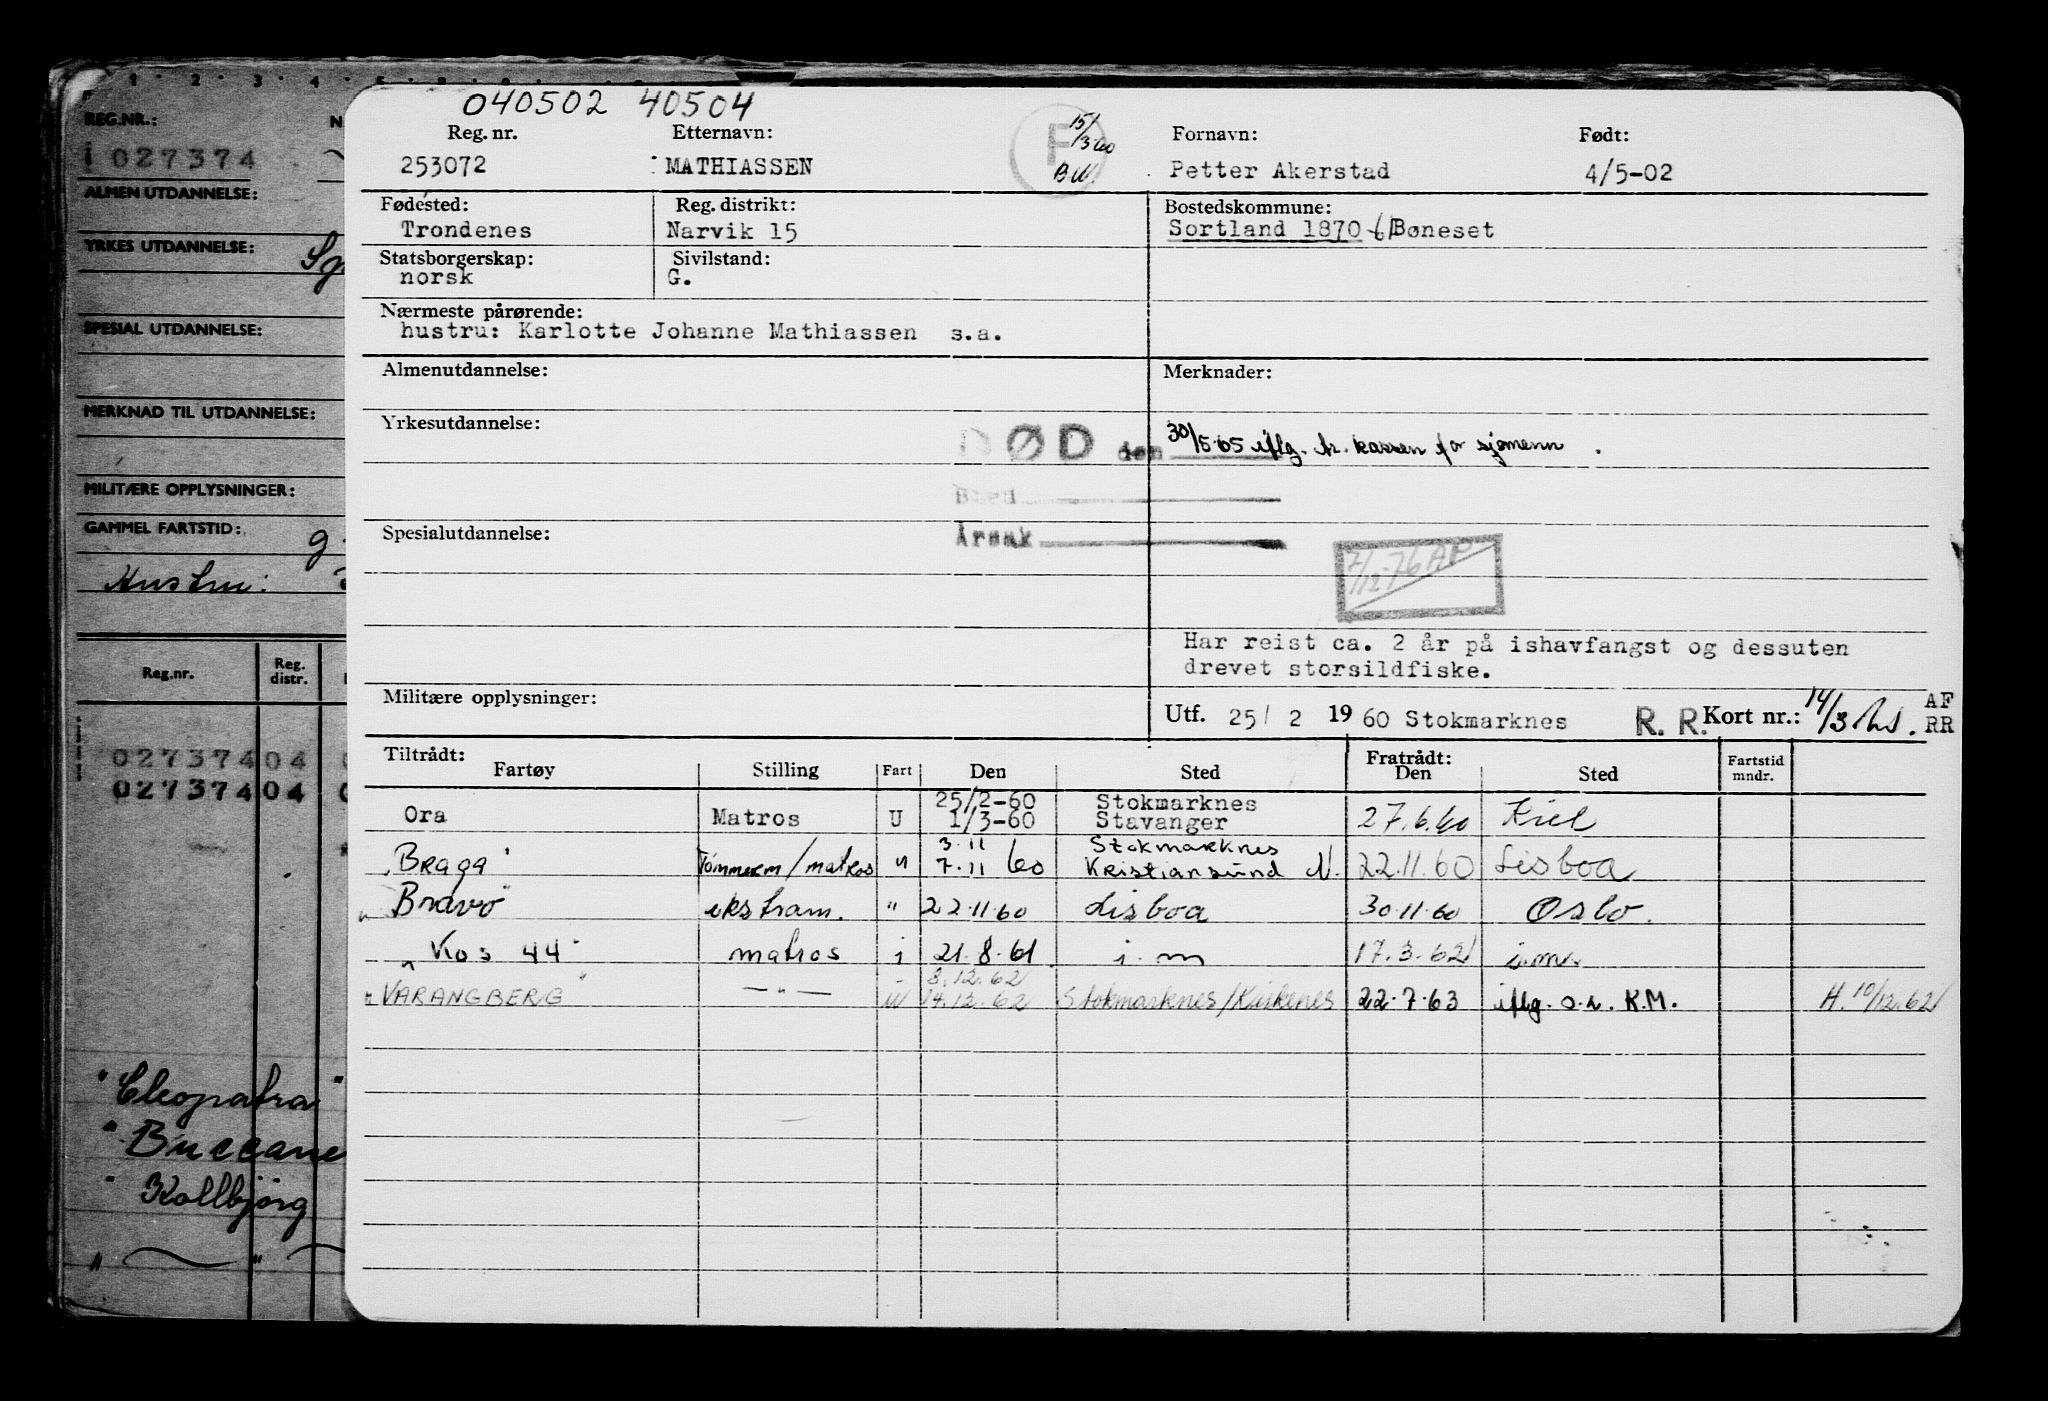 040502 40504
Reg. nr. Etternavn: Fornavn: Født:
253072 MATHIASSEN F 15/3 60 BW. Petter Akerstad 4/5-02
Fødested: Reg. distrikt: Bostedskommune:
Trondenes Narvik 15 Sortland 1870 Bøneset
Statsborgerskap: Sivilstand:
norsk G.
Nærmeste pårørende:
hustru: Karlotte Johanne Mathiassen s.a.
Almenutdannelse: Merknader:
Yrkesutdannelse:
DØD den 30/5-65 iflg. tr. kassen for sjømenn.
Sted
Årsak
Spesialutdannelse:
7/12-76 AP
Har reist ca. 2 år på ishavfangst og dessuten
drevet storsildfiske.
Militære opplysninger:
Utf. 25/ 2 1960 Stokmarknes R. R. Kort nr.: 14/3 AF RR
Tiltrådt: Fratrådt:
Fartøy Stilling Fart Den Sted Den Sted Fartstid mndr.
Ora Matros U 25/2-60 1/3-60 Stokmarknes Stavanger 27.6.60 Kiel
"Braga" Tømmerm/matros " 3.11 7.11 60 Stokmarknes Kristiansund N. 22.11.60 Lisboa
"Bravo" ekstram. " 22.11.60 Lisboa 30.11.60 Oslo.
"Kos 44" matros i 21.8.61 i.m 17.3.62 i.m.
"VARANGBERG" —"— U 8.12.62 14.12.62 Stokmarknes/Kirkenes 22.7.63 iflg. o.r. K.M. H. 10/12.62
1 2 3 4 5
REG.NR.: N
i 027374
ALMEN UTDANNELSE:
YRKES UTDANNELSE:
SPESIAL UTDANNELSE:
MERKNAD TIL UTDANNELSE:
MILITÆRE OPPLYSNINGER:
GAMMEL FARTSTID: g
Hustru:
Reg.nr. Reg. distr.
02737404
02737404
"Cleopatra"
"Buccane
" Kollbjørg
" — " —